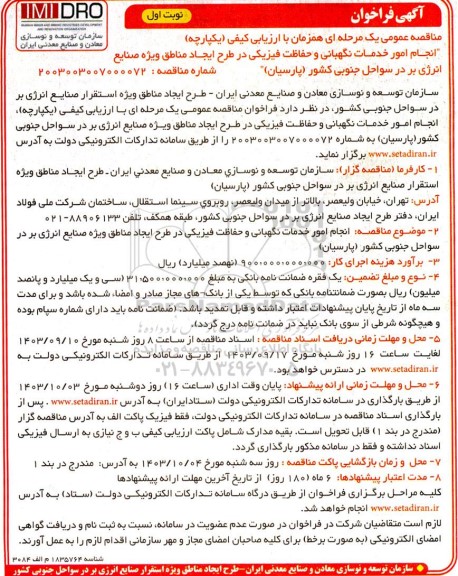 IMIDRO
IRANIAN MINES AND MINING INDUSTRIES DEVELOPMENT AND RENOVATION ORGANIZATION
سازمان توسعه و نوسازی
معادن و صنایع معدنی ایران
آگهی فراخوان
نوبت اول
مناقصه عمومی یک مرحله ای همزمان با ارزیابی کیفی (یکپارچه)
"انجام امور خدمات نگهبانی و حفاظت فیزیکی در طرح ایجاد مناطق ویژه صنایع
انرژی بر در سواحل جنوبی کشور (پارسیان)" شماره مناقصه : ۲۰۰۳۰۰۳۰۰۷۰۰۰۰۷۲
سازمان توسعه و نوسازی معادن و صنایع معدنی ایران - طرح ایجاد مناطق ویژه استقرار صنایع انرژی بر
در سواحل جنوبی کشور، در نظر دارد فراخوان مناقصه عمومی یک مرحله ای با ارزیابی کیفی (یکپارچه)،
انجام امور خدمات نگهبانی و حفاظت فیزیکی در طرح ایجاد مناطق ویژه صنایع انرژی بر در سواحل جنوبی
کشور(پارسیان) به شماره ۲۰۰۳۰۰۳۰۰۷۰۰۰۰۷۲ را از طریق سامانه تدارکات الکترونیکی دولت به آدرس
www.setadiran.ir برگزار نماید.
۱- کارفرما (مناقصه گزار): سازمان توسعه و نوسازي معادن و صنایع معدني ایران ـ طرح ایجاد مناطق ویژه
استقرار صنایع انرژی بر در سواحل جنوبی کشور (پارسیان)
آدرس: تهران، خیابان ولیعصر، بالاتر از میدان ولیعصر، روبروي سینما استقلال، ساختمان شرکت ملی فولاد
ایران، دفتر طرح ایجاد صنایع انرژی بر در سواحل جنوبی کشور، طبقه همکف، تلفن ۸۸۹۰۶۱۳۳-۰۲۱
۲- موضوع مناقصه: انجام امور خدمات نگهبانی و حفاظت فیزیکی در طرح ایجاد مناطق ویژه صنایع انرژی بر در
سواحل جنوبی کشور (پارسیان)
۳- برآورد هزینه اجرای کار: ۹۰۰.۰۰۰.۰۰۰.۰۰۰ (نهصد میلیارد) ریال
۴- نوع و مبلغ تضمین: یک فقره ضمانت نامه بانکی به مبلغ ۳۱.۵۰۰.۰۰۰.۰۰۰ (سی و یک میلیارد و پانصد
میلیون) ریال بصورت ضمانتنامه بانکی که توسط یکی از بانک های مجاز صادر و امضاء شده باشد و برای مدت
سه ماه از تاریخ پایان پیشنهادات اعتبار داشته و قابل تمدید باشد. (ضمانت نامه باید دارای شماره سپام بوده
و هیچگونه شرطی از سوی بانک نباید در ضمانت نامه درج گردد).
۵- محل و مهلت زمانی دریافت اسناد مناقصه : اسناد مناقصه از ساعت ۸ روز شنبه مورخ ۱۴۰۳/۰۹/۱۰
لغایت ساعت ۱۶ روز شنبه مورخ ۱۴۰۳/۰۹/۱۷ از طریق سامانه تدارکات الکترونیکی دولت به
آدرس www.setadiran.ir در دسترس خواهد بود.
۶- محل و مهلت زمانی ارائه پیشنهاد: پایان وقت اداری (ساعت ۱۶) روز دوشنبه مورخ ۱۴۰۳/۱۰/۰۳
از طریق بارگذاری در سامانه تدارکات الکترونیکی دولت (ستادایران) به آدرس www.setadiran.ir . پس از
بارگذاری اسناد مناقصه در سامانه تدارکات الکترونیکی دولت، فقط فیزیک پاکت الف به آدرس مناقصه گزار
(مندرج در بند ۱) قابل تحویل است. بقیه مدارک شامل پاکت ارزیابی کیفی ب و ج نیازی به ارسال فیزیکی
اسناد نداشته و فقط در سامانه مذکور بارگذاری گردد.
۷- محل و زمان بازگشایی پاکت مناقصه : روز سه شنبه مورخ ۱۴۰۳/۱۰/۰۴ به آدرس: مندرج در بند ۱
۸- مدت اعتبار پیشنهادها: ۶ ماه (۱۸۰ روز) از تاریخ آخرین مهلت ارائه پیشنهادها
کلیه مراحل برگزاری فراخوان از طریق درگاه سامانه تدارکات الکترونیکی دولت (ستاد) به آدرس
www.setadiran.ir انجام خواهد شد.
لازم است متقاضیان شرکت در فراخوان در صورت عدم عضویت در سامانه، نسبت به ثبت نام و دریافت گواهی
امضای الکترونیکی (به صورت برخط) برای کلیه صاحبان امضای مجاز و مهر سازمانی اقدام لازم را به عمل آورند.
شناسه ۱۸۳۵۷۶۴ م الف ۳۰۸۴
سازمان توسعه و نوسازی معادن و صنایع معدنی ایران–طرح ایجاد مناطق ویژه استقرار صنایع انرژی بر در سواحل جنوبی کشور